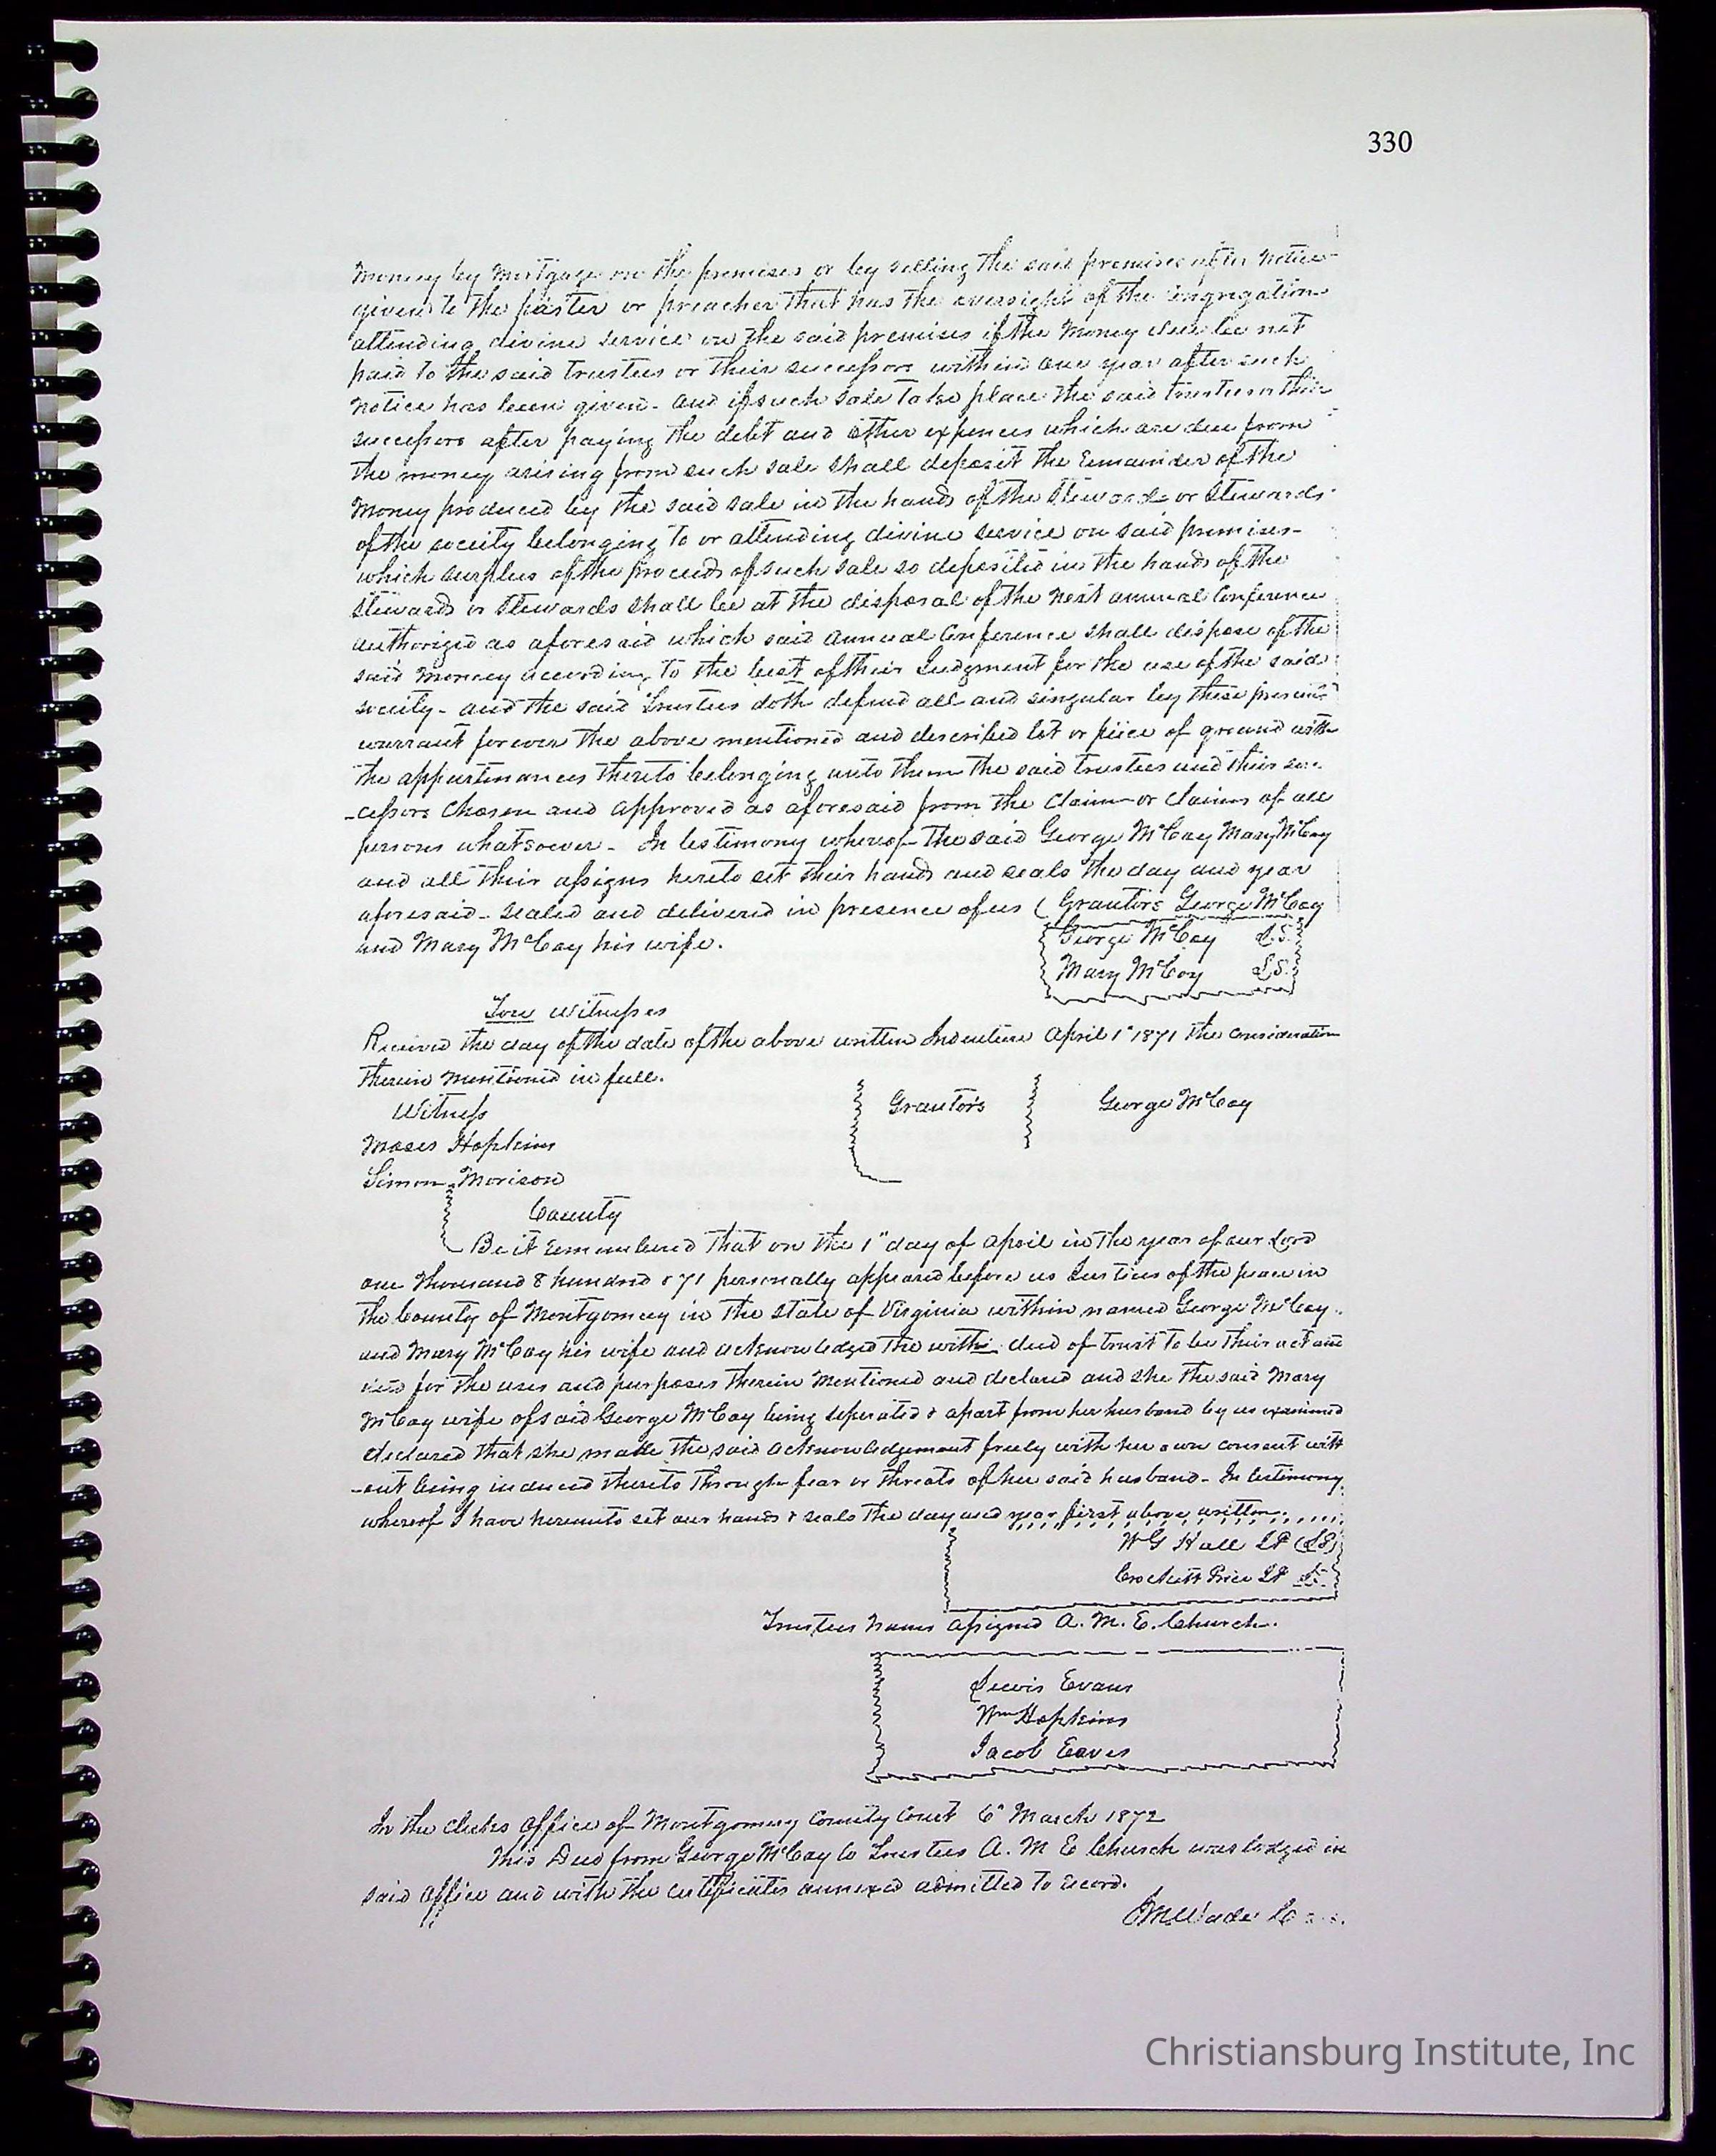 330
money by mortgage on the premises or by selling the said premises after notice
given to the paster or preacher that has the oversight of the Congregation
attending divine service on the said premises if the money due be not
paid to the said trustees or their successors within one year after such
notice has been given - and if such sale take place the said trustees or their
successors after paying the debt and other expences which are due from
the money arising from such sale shall deposit the remainder of the
money produced by the said sale in the hands of the Steward or Stewards
of the soceity belonging to or attending divine service on said premises -
which surplus of the proceeds of such sale so deposited in the hands of the
Steward or Stewards shall be at the disposal of the next annual Conference
authorized as aforesaid which said annual Conference shall dispose of the
said money according to the best of their Judgment for the use of the said
soceity - and the said Trustees doth defend all and singular by these presents
warrant forever the above mentioned and described lot or piece of ground with
the appurtinances thereto belonging unto them the said trustees and their suc
-cessors chosen and approved as aforesaid from the claim or claims of all
persons whatsoever - In testimony whereof the said George McCay Mary McCay
and all their assigns hereto set their hands and seals the day and year
aforesaid - sealed and delivered in presence of us ( Grantors George McCay
and Mary McCay his wife.
George McCay L.S.
Mary McCay L.S.
Witnesses
Received the day of the date of the above written Indenture April 1" 1871 the consideration
therein mentioned in full.
Grantors George McCay
Witness
Moses Hopkins
Simon Morison
County
Be it remembered that on the 1" day of April in the year of our Lord
one thousand 8 hundred & 71 personally appeared before us Justices of the peace in
the County of Montgomery in the State of Virginia within named George McCay
and Mary McCay his wife and acknowledged the within deed of trust to be their act and
deed for the uses and purposes therein mentioned and declared and she the said Mary
McCay wife of said George McCay being seperated & apart from her husband by us examined
declared that she made the said acknowledgement freely with her own consent with
-out being induced thereto through fear or threats of her said husband - In testimony
whereof I have hereunto set our hands & seals the day and year first above written
WG Hall JP (LS)
Crockett Price JP LS
Trustees names assigned A. M. E. Church.
Lewis Evans
Wm Hopkins
Jacob Eaves
In the clerks office of Montgomery County Court 6" March 1872
This Deed from George McCay to Trustees A. M E Church was lodged in
said office and with the certificates annexed admitted to record.
Wade
Christiansburg Institute, Inc